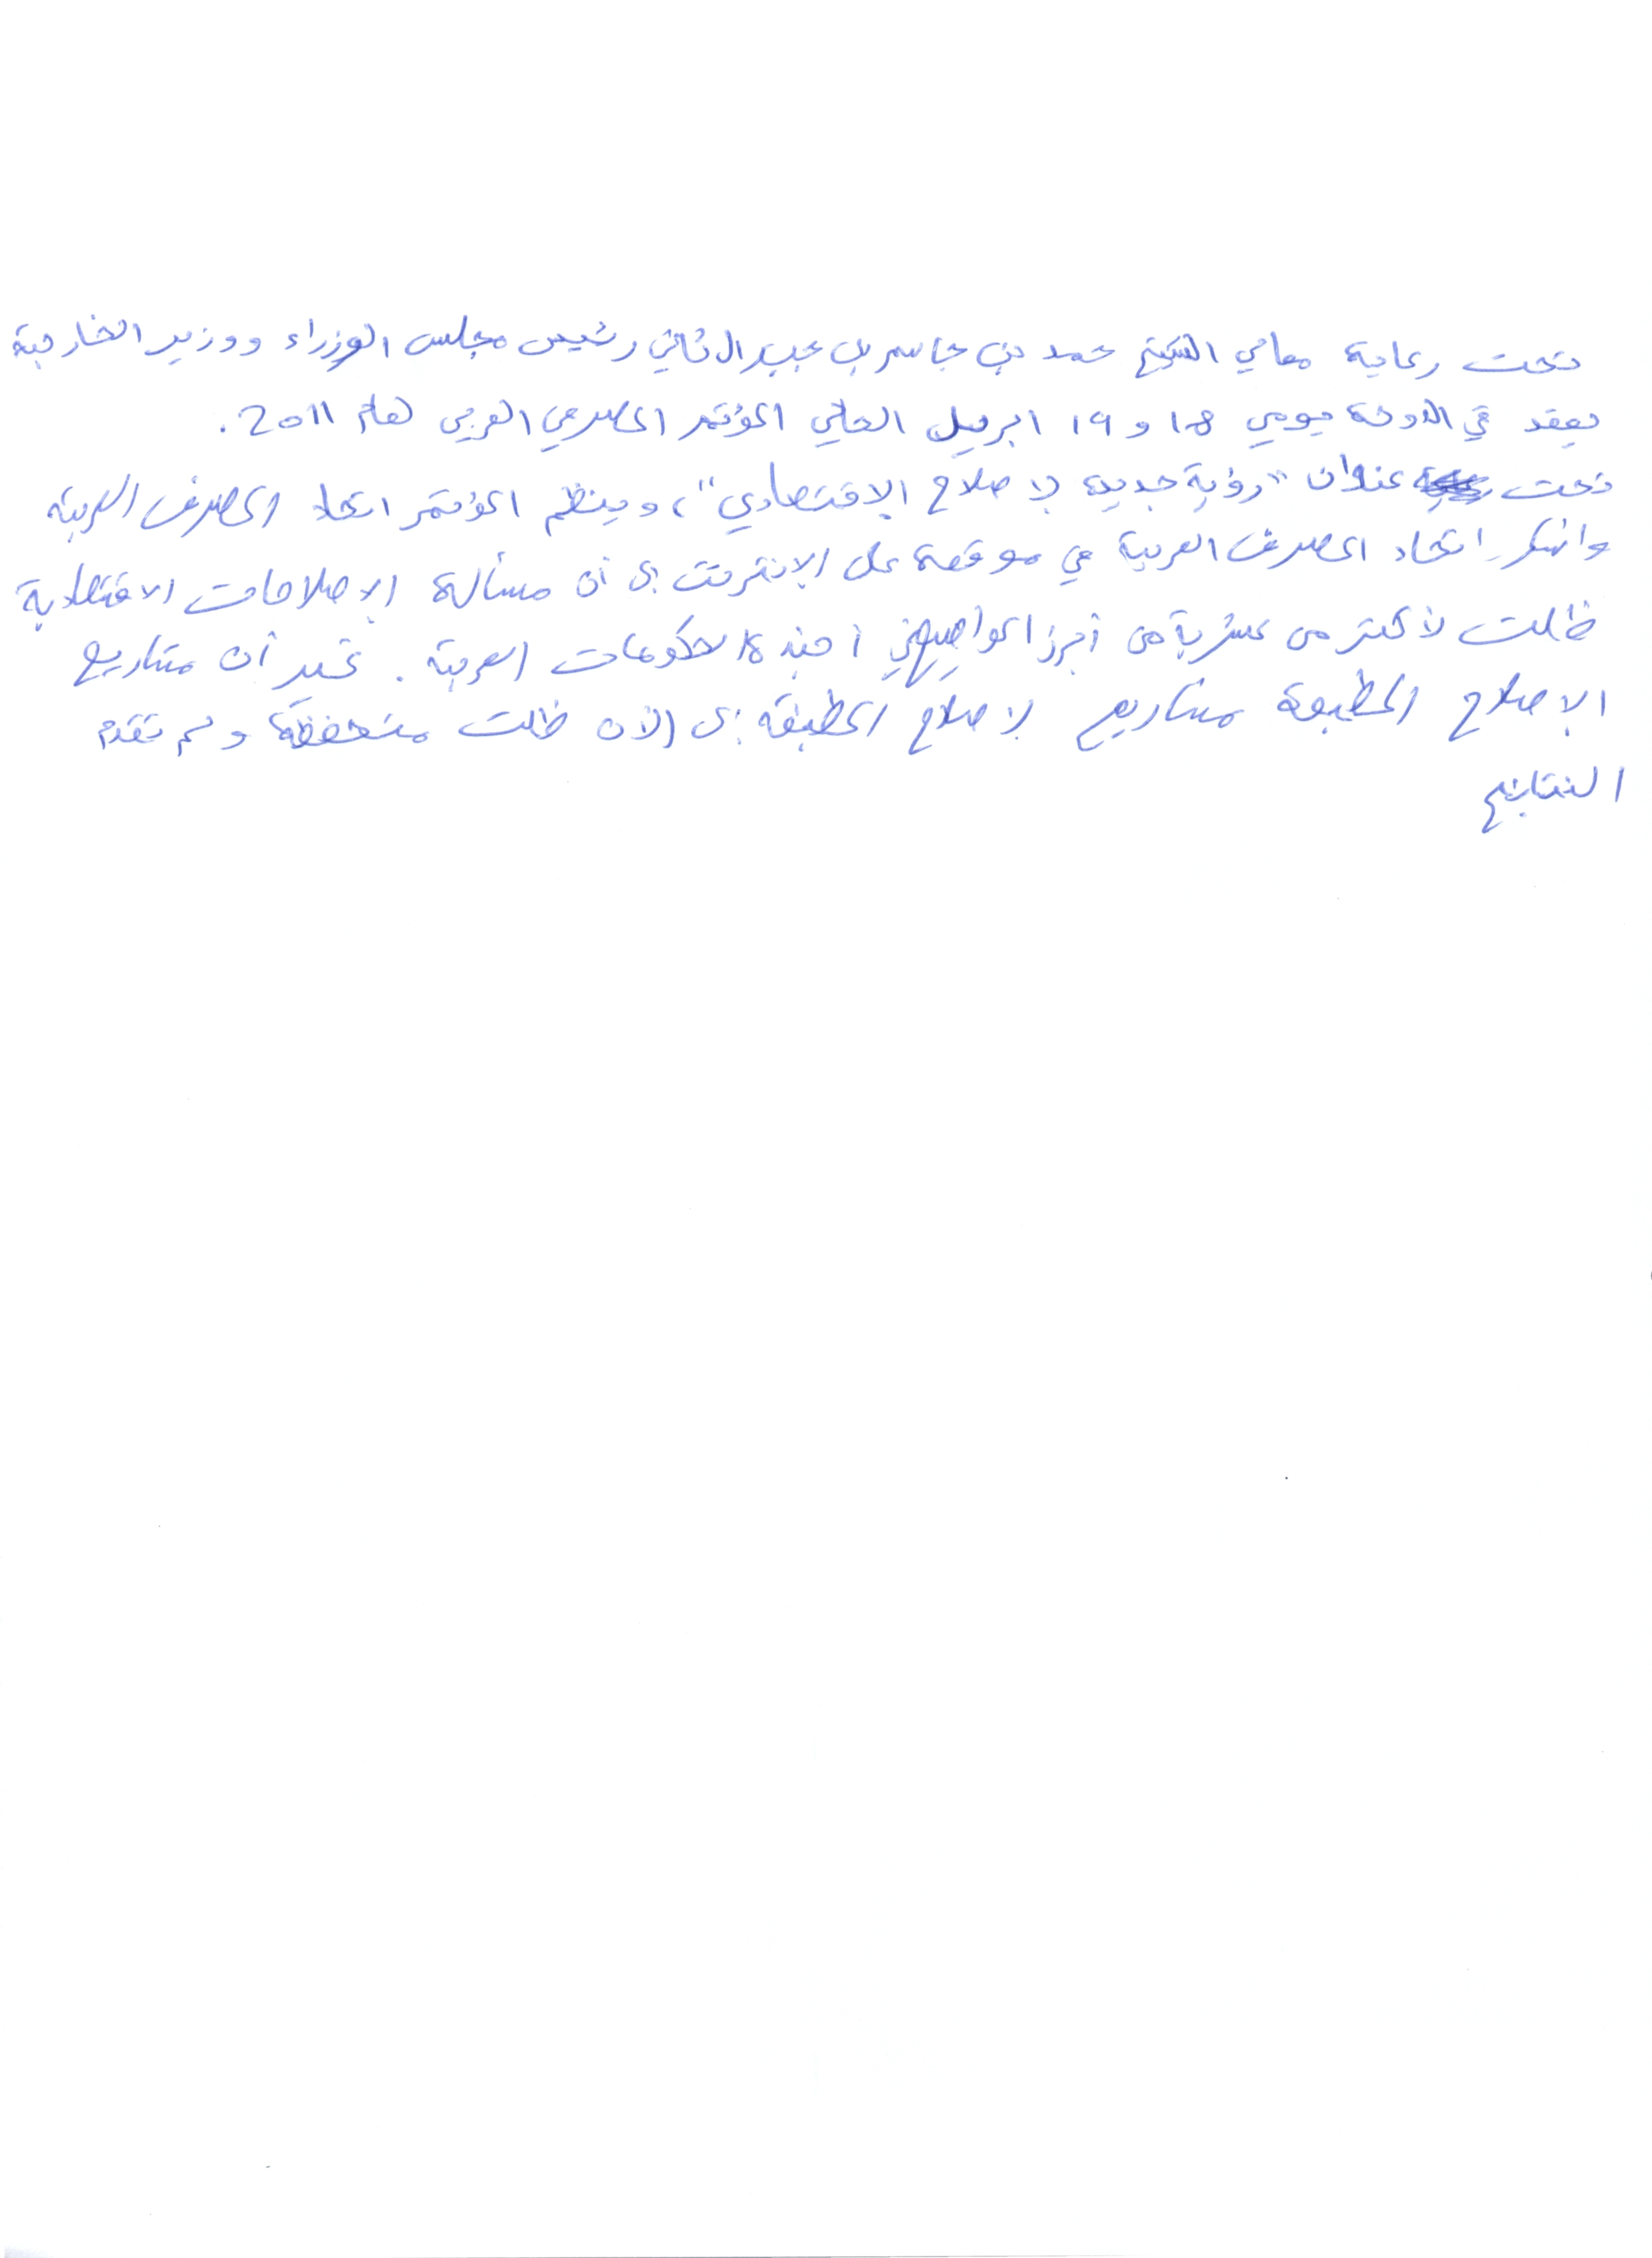 تحت رعاية معالي الشيخ حمد بن جاسم بن جبر ال ثاني رئيس مجلس الوزراء ووزير الخارجية
يعقد في الدوحة يومي 18 و 19 ابريل الحالي المؤتمر المصرفي العربي لعام 2011.
تحت عنوان "رؤية جديدة لاصلاح الاقتصادي"، وينظم المؤتمر اتحاد المصارف العربية
اتحاد المصارف العربية في موقعه على الانترنت الى ان مسألة الاصلاحات الاقتصادية
ظلت لأكثر من عشرية من أبرز المواضيع في أجندة الحكومات العربية. غير أن مشاريع
الاصلاح المطبقة مشاريع لاصلاح المطبقة الى الان ظلت منخفضة ولم تقدم
النتايج